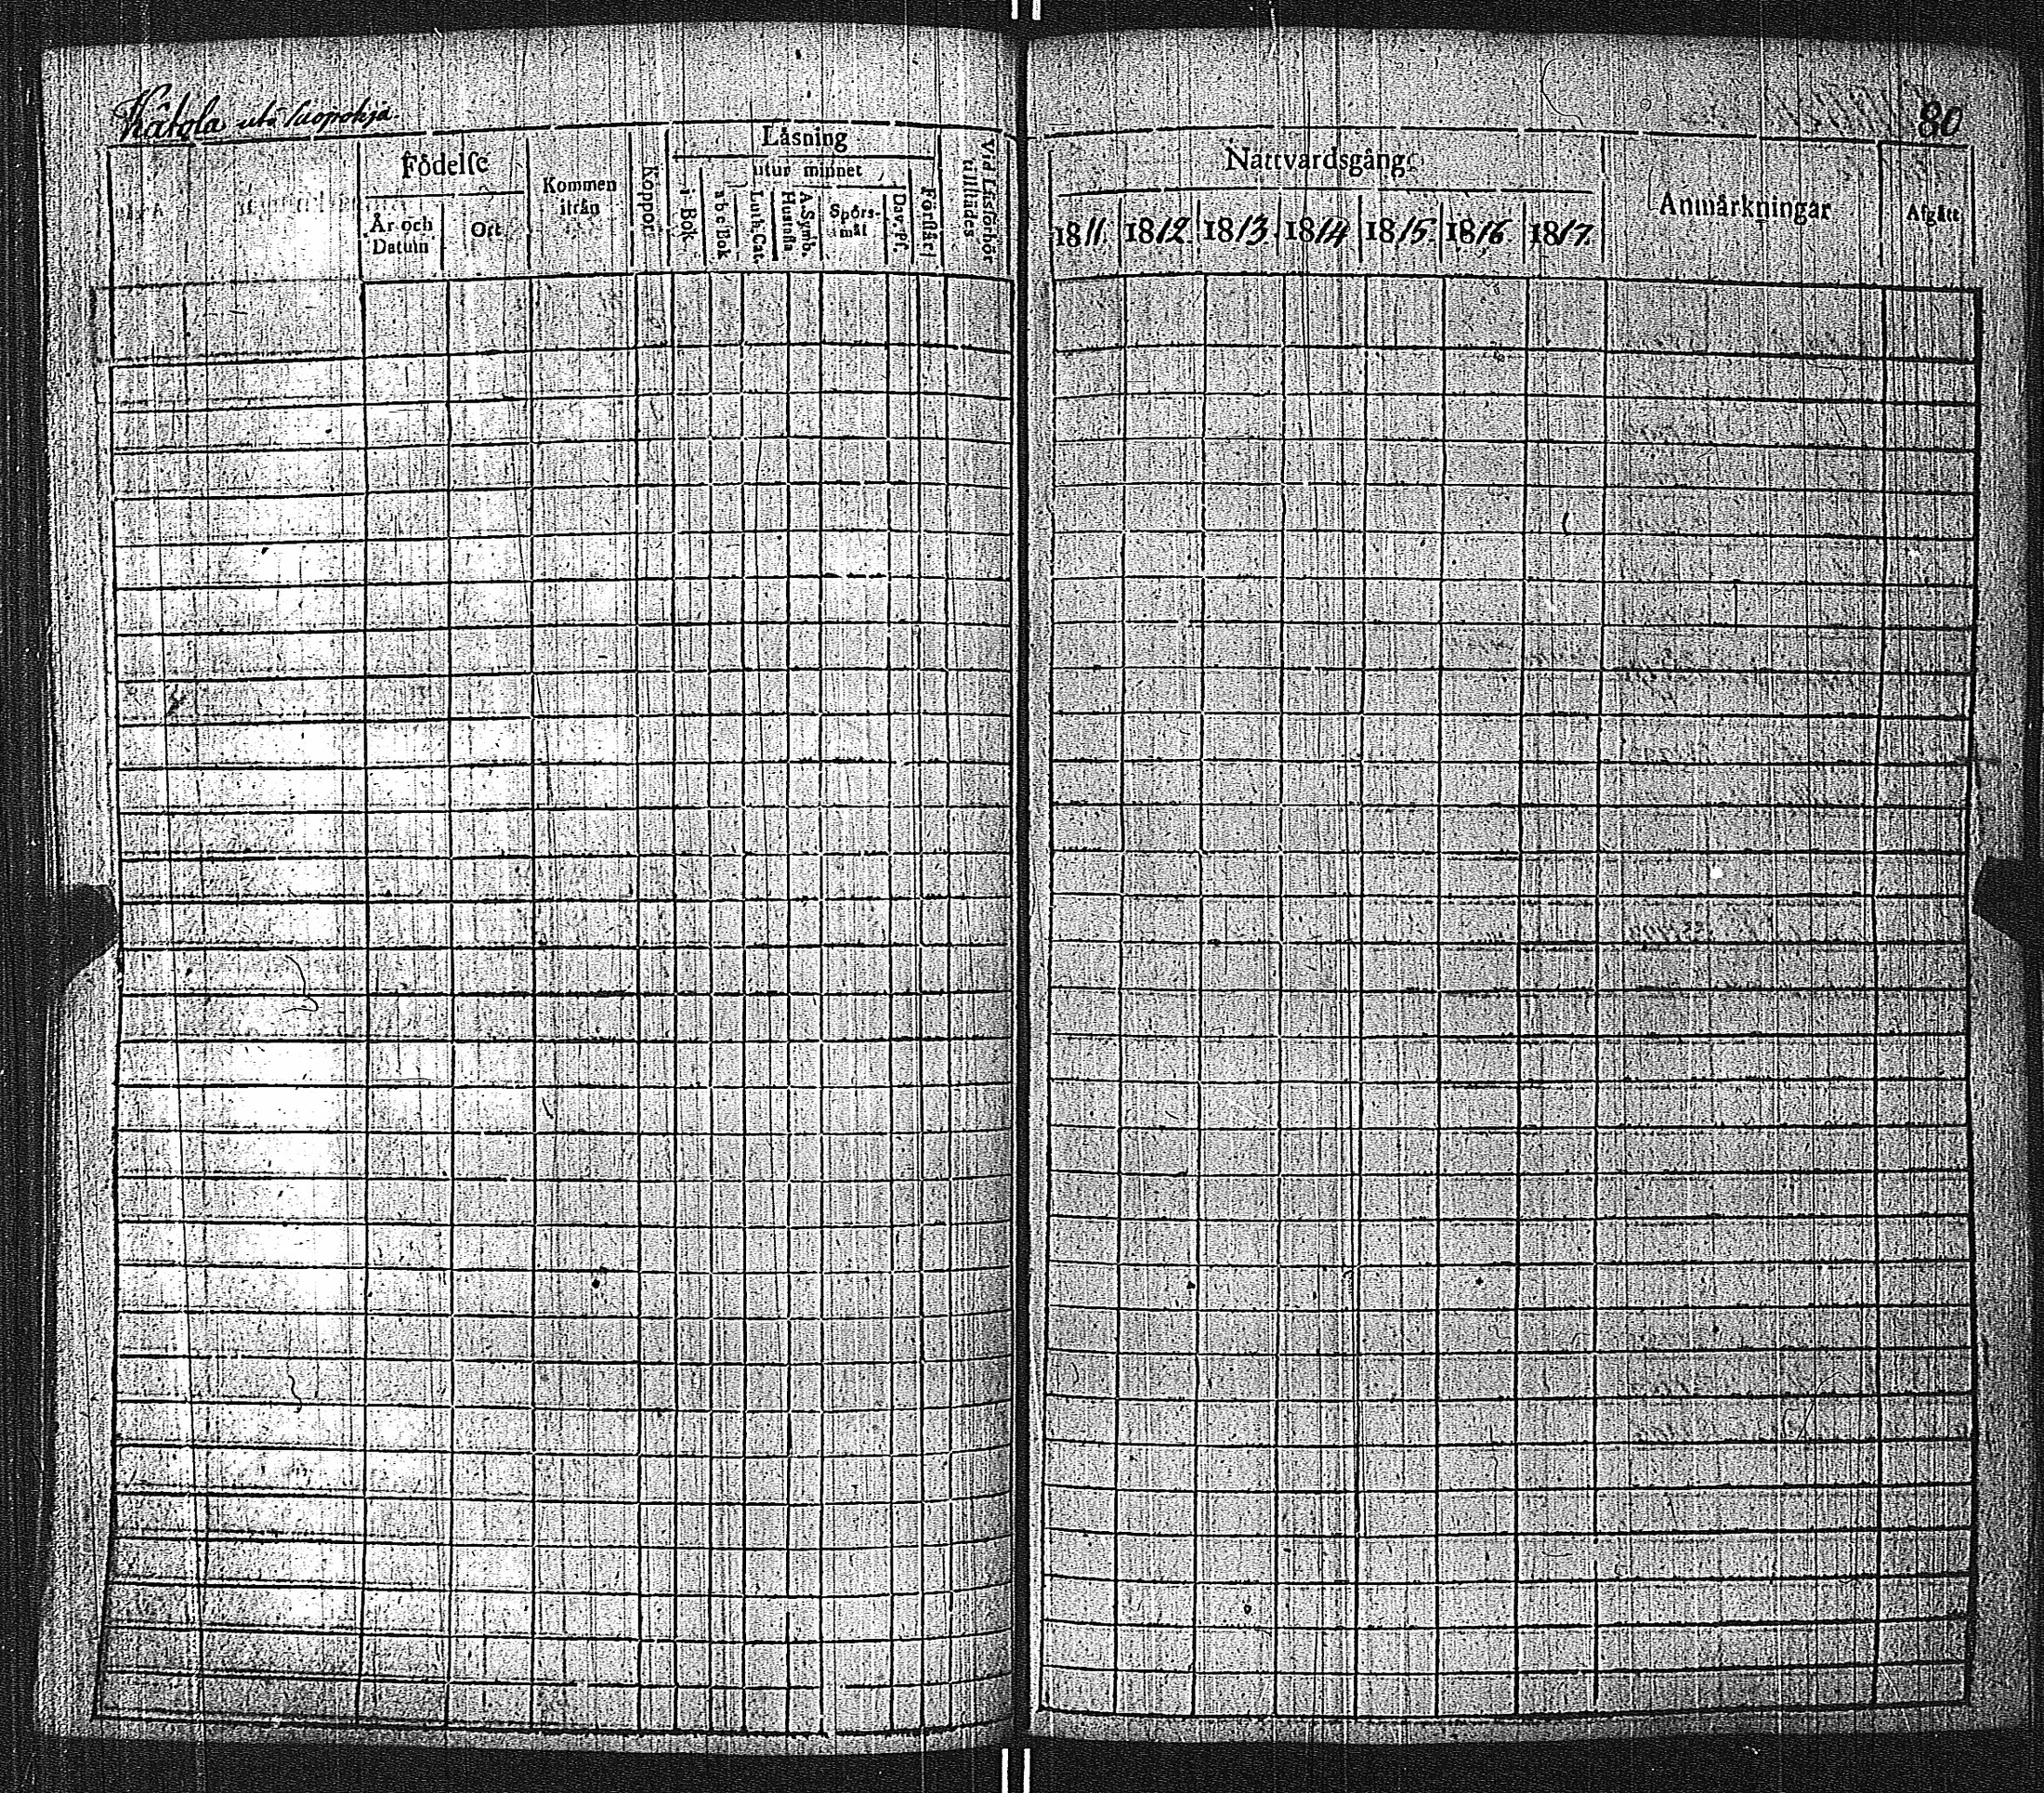 Kåtola uti Suopohja.
80
Födelse
År och Datum
Ort
Kommen ifrån
Koppor
Läsning
i Bok
utur minnet
a b c Bok
Luth. Cat.
A. Symb. Hustafla
Spörs-mål
Dav. Ps.
Förstår
Vid Läsförhör tillstädes
Nattvardsgång
1811.
1812
1813.
1814
1815.
1816.
1817.
Anmärkningar
Afgått